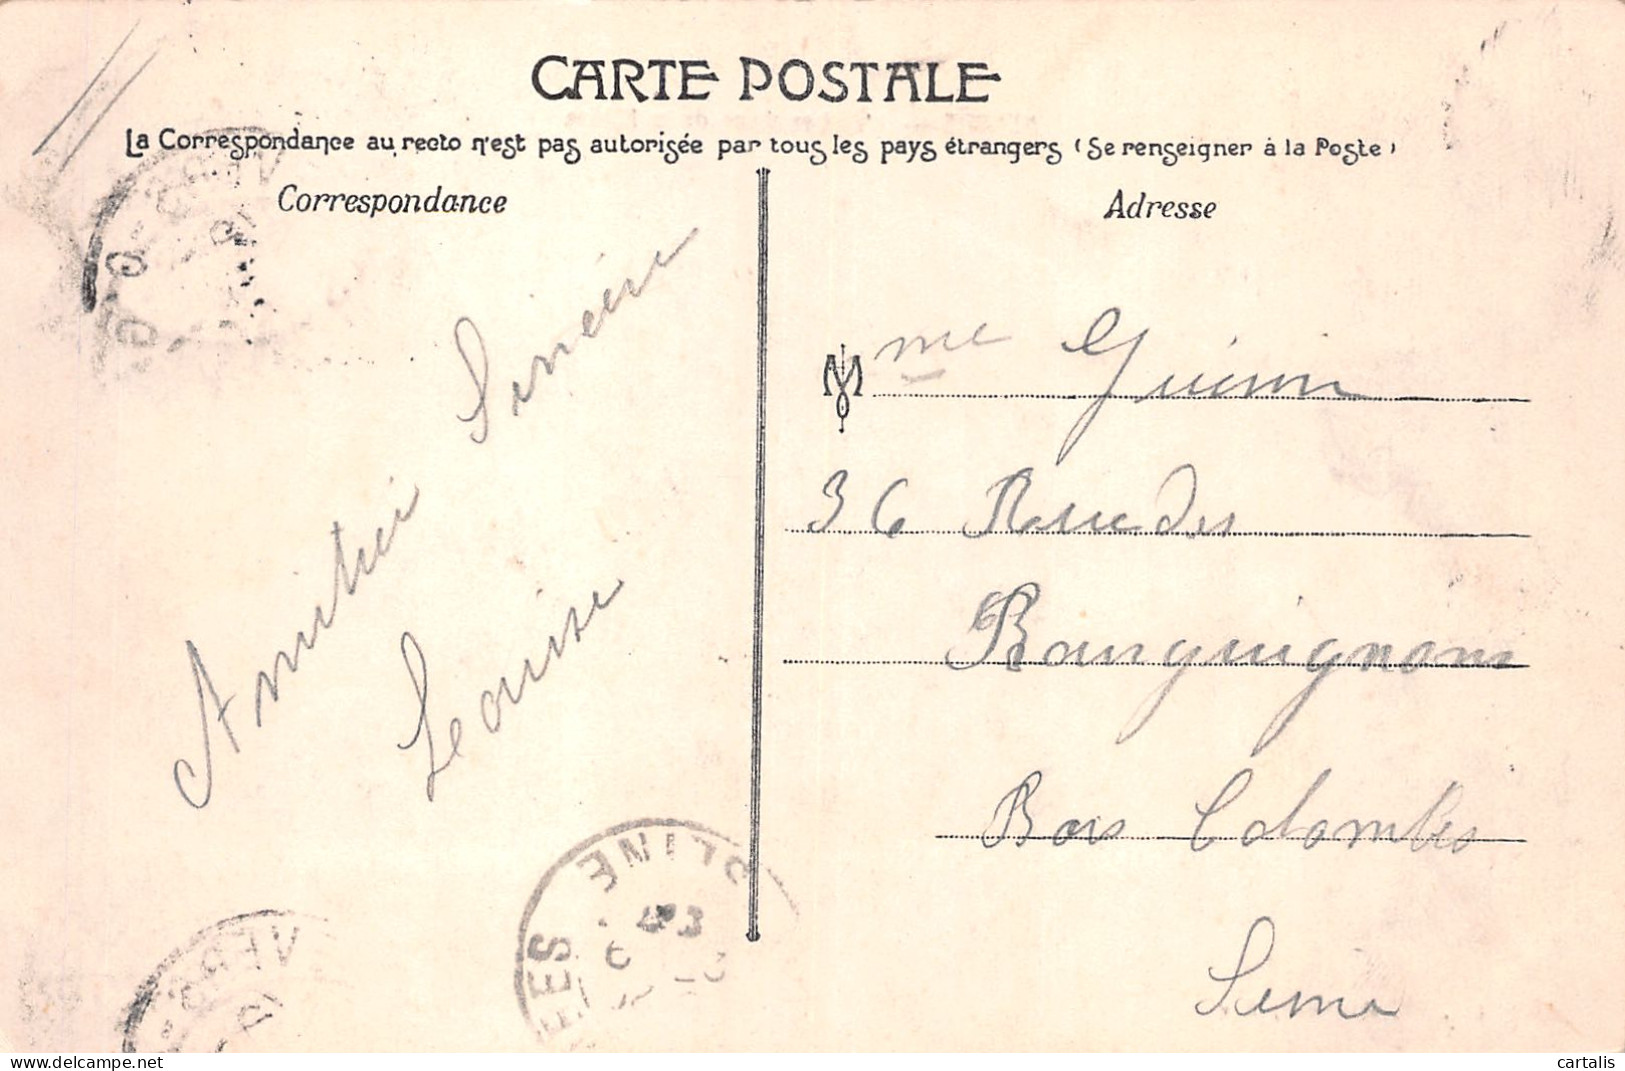 CARTE POSTALE
La Correspondance au recto n'est pas autorisée par tous les pays étrangers (Se renseigner à la Poste)
Correspondance
Adresse
Amitiei Sincère
Leouise
M me
36 Rue des
Bourguignons
Bois Colombes
Seine
SEINE
cartalis